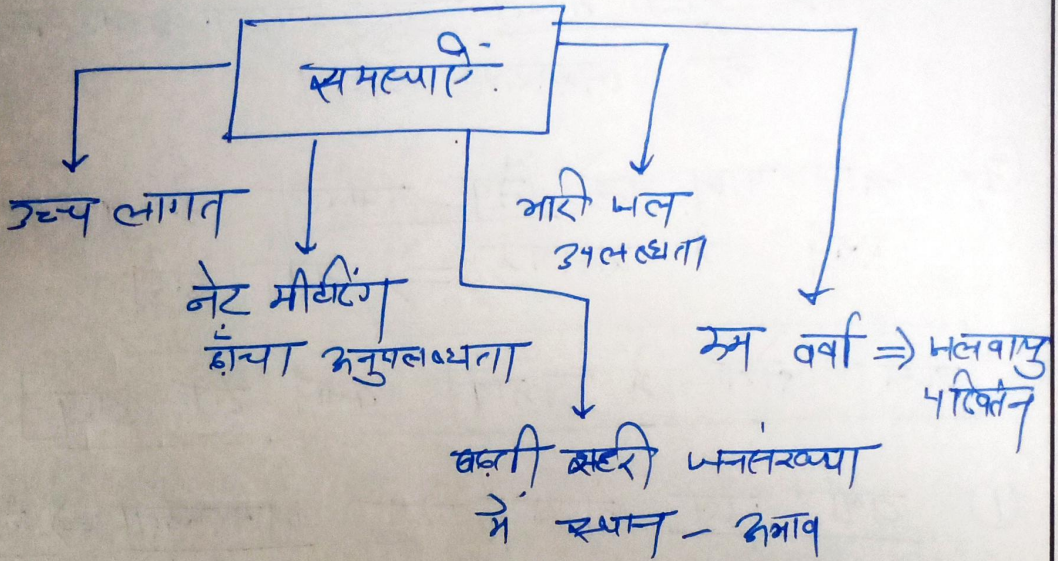 समस्याएँ
उच्च लागत
नेट मीटरिंग
ढ़ांचा अनुपलब्धता
भारी जल
उपलब्धता
कम वर्षा ⇒ जलवायु
परिवर्तन
बढ़ती शहरी जनसंख्या
में स्थान - अभाव